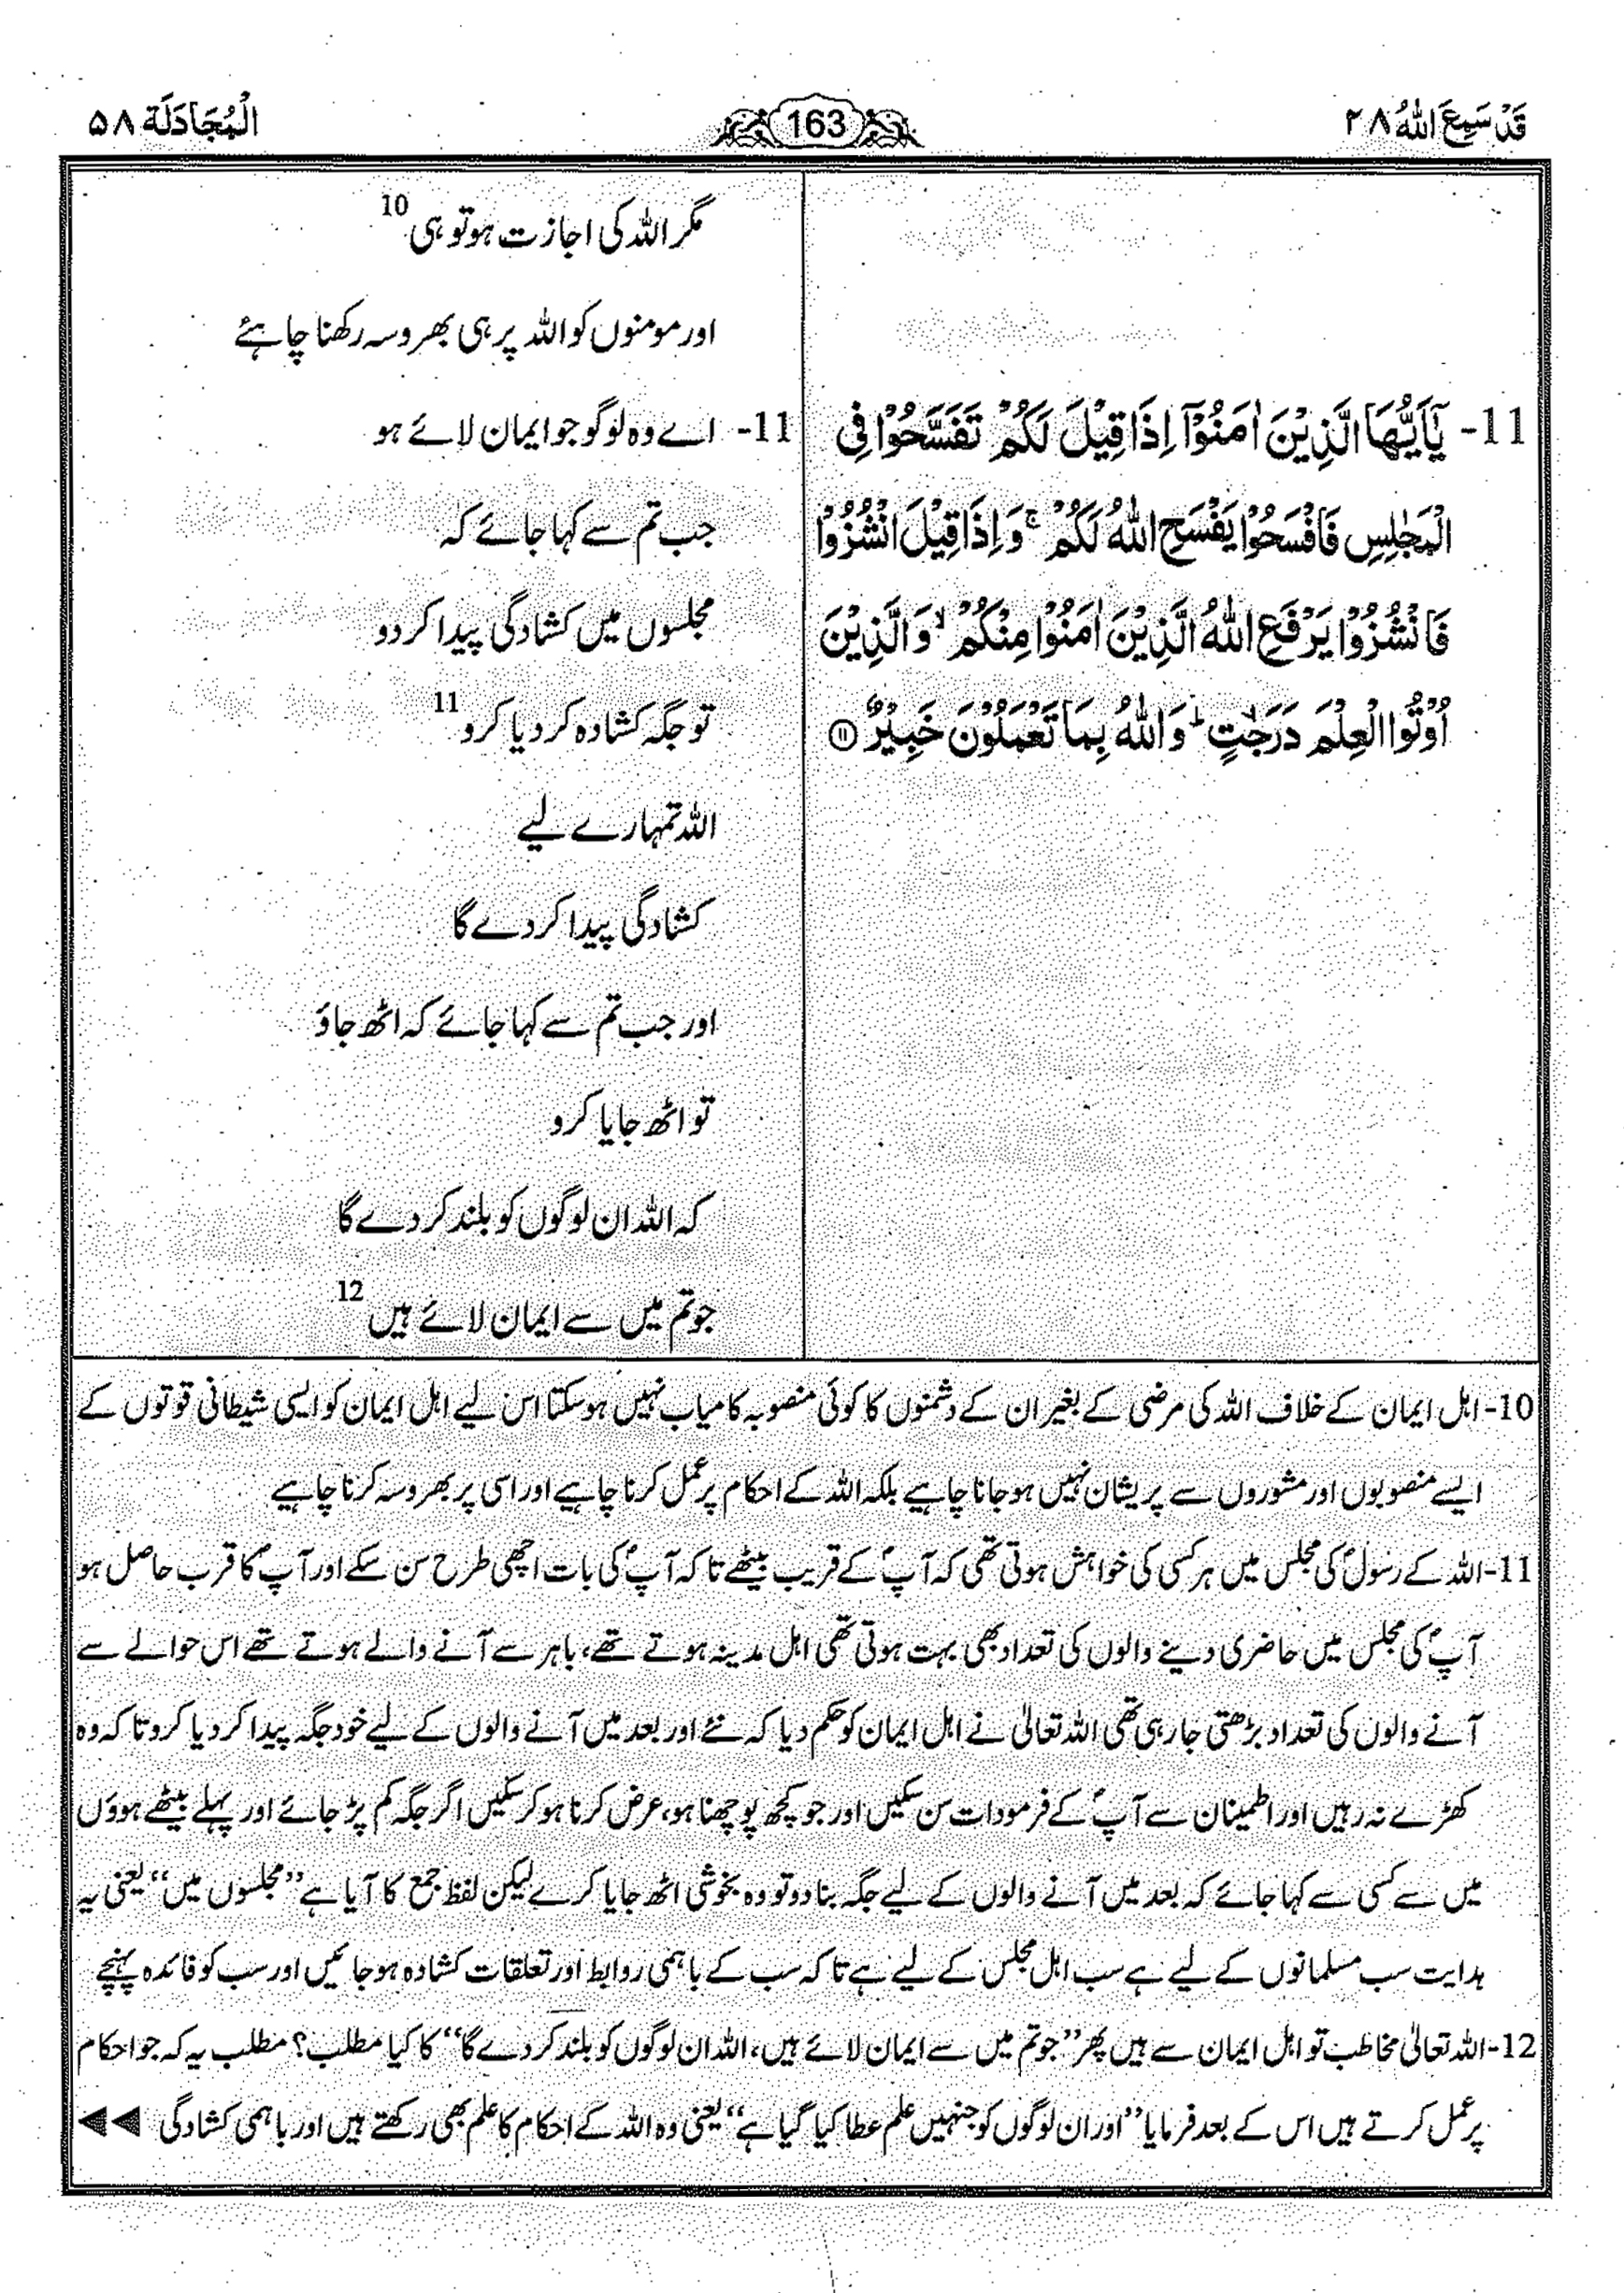 قَدْ سَمِعَ اللّٰهُ ۲۸
163
الْمُجَادَلَة ۵۸
11- يٰۤاَيُّهَا الَّذِيْنَ اٰمَنُوْۤا اِذَا قِيْلَ لَكُمْ تَفَسَّحُوْا فِى
الْمَجٰلِسِ فَافْسَحُوْا يَفْسَحِ اللّٰهُ لَكُمْ ۚ وَ اِذَا قِيْلَ انْشُزُوْا
فَانْشُزُوْا يَرْفَعِ اللّٰهُ الَّذِيْنَ اٰمَنُوْا مِنْكُمْ ۙ وَ الَّذِيْنَ
اُوْتُوا الْعِلْمَ دَرَجٰتٍ ؕ وَ اللّٰهُ بِمَا تَعْمَلُوْنَ خَبِيْرٌ ۝۱۱
مگر اللہ کی اجازت ہو تو ہی 10
اور مومنوں کو اللہ پر ہی بھروسہ رکھنا چاہئے
11- اے وہ لوگو جو ایمان لائے ہو
جب تم سے کہا جائے کہ
مجلسوں میں کشادگی پیدا کر دو
تو جگہ کشادہ کر دیا کرو 11
اللہ تمہارے لیے
کشادگی پیدا کر دے گا
اور جب تم سے کہا جائے کہ اٹھ جاؤ
تو اٹھ جایا کرو
کہ اللہ ان لوگوں کو بلند کر دے گا
جو تم میں سے ایمان لائے ہیں 12
10- اہل ایمان کے خلاف اللہ کی مرضی کے بغیر ان کے دشمنوں کا کوئی منصوبہ کامیاب نہیں ہو سکتا اس لیے اہل ایمان کو ایسی شیطانی قوتوں کے
ایسے منصوبوں اور مشوروں سے پریشان نہیں ہو جانا چاہیے بلکہ اللہ کے احکام پر عمل کرنا چاہیے اور اسی پر بھروسہ کرنا چاہیے
11- اللہ کے رسولؐ کی مجلس میں ہر کسی کی خواہش ہوتی تھی کہ آپؐ کے قریب بیٹھے تا کہ آپؐ کی بات اچھی طرح سن سکے اور آپؐ کا قرب حاصل ہو
آپؐ کی مجلس میں حاضری دینے والوں کی تعداد بھی بہت ہوتی تھی اہل مدینہ ہوتے تھے، باہر سے آنے والے ہوتے تھے اس حوالے سے
آنے والوں کی تعداد بڑھتی جا رہی تھی اللہ تعالیٰ نے اہل ایمان کو حکم دیا کہ نئے اور بعد میں آنے والوں کے لیے خود جگہ پیدا کر دیا کرو تا کہ وہ
کھڑے نہ رہیں اور اطمینان سے آپؐ کے فرمودات سن سکیں اور جو کچھ پوچھنا ہو، عرض کرنا ہو کر سکیں اگر جگہ کم پڑ جائے اور پہلے بیٹھے ہووٗں
میں سے کسی سے کہا جائے کہ بعد میں آنے والوں کے لیے جگہ بنا دو تو وہ بخوشی اٹھ جایا کرے لیکن لفظ جمع کا آیا ہے ”مجلسوں میں“ یعنی یہ
ہدایت سب مسلمانوں کے لیے ہے سب اہل مجلس کے لیے ہے تا کہ سب کے باہمی روابط اور تعلقات کشادہ ہو جائیں اور سب کو فائدہ پہنچے
12- اللہ تعالیٰ مخاطب تو اہل ایمان سے ہیں پھر ”جو تم میں سے ایمان لائے ہیں، اللہ ان لوگوں کو بلند کر دے گا“ کا کیا مطلب؟ مطلب یہ کہ جو احکام
پر عمل کرتے ہیں اس کے بعد فرمایا ”اور ان لوگوں کو جنہیں علم عطا کیا گیا ہے“ یعنی وہ اللہ کے احکام کا علم بھی رکھتے ہیں اور باہمی کشادگی ◀◀